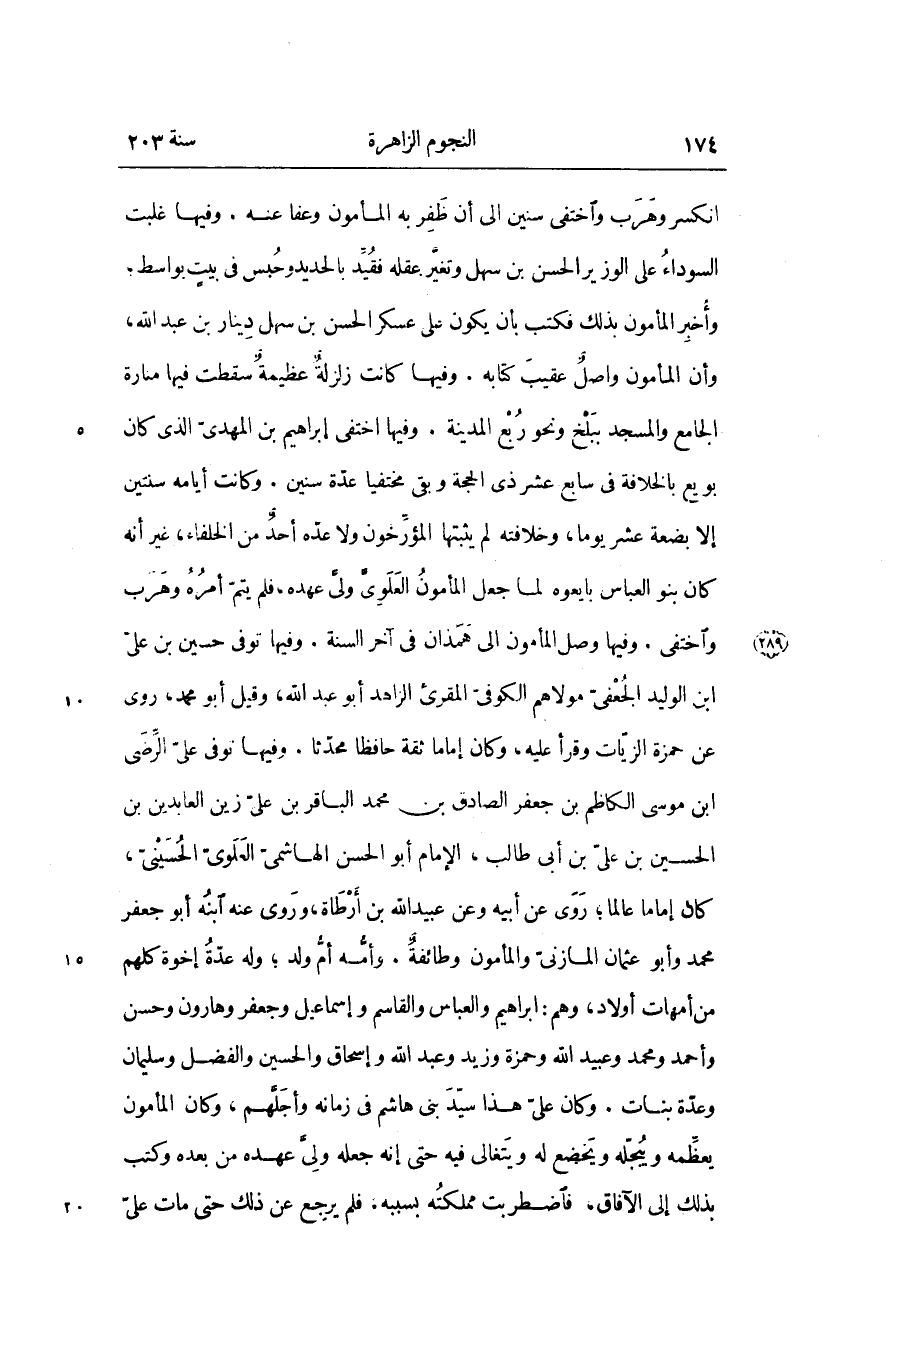 ١٧٤ النجوم الزاهرة سنة ٢٠٣
انكسر وهَرَب وٱختفى سنين الى أن ظَفِر به المأمون وعفا عنه . وفيها غلبت
السوداءُ على الوزير الحسن بن سهل وتغيَّر عقله فقُيِّد بالحديد وحُبس فى بيتٍ بواسط؛
وأُخبِر المأمون بذلك فكتب بأن يكون على عسكر الحسن بن سهل دِينار بن عبد الله،
وأن المأمون واصلٌ عقيبَ كتابه . وفيها كانت زلزلةٌ عظيمةٌ سقطت فيها منارة
الجامع والمسجد ببَلْخ ونحو رُبْع المدينة . وفيها اختفى إبراهيم بن المهدىّ الذى كان ٥
بويع بالخلافة فى سابع عشر ذى الحجة وبقى مختفيا عدّة سنين . وكانت أيامه سنتين
إلا بضعة عشر يوما، وخلافته لم يثبتها المؤرّخون ولا عدّه أحدٌ من الخلفاء، غير أنه
كان بنو العباس بايعوه لما جعل المأمونُ العَلَوىَّ ولىَّ عهده، فلم يتمّ أمرُهُ وهَرَب
وٱختفى . وفيها وصل المأمون الى هَمَذان فى آخر السنة . وفيها توفى حسين بن علىّ (٢٨٩)
ابن الوليد الجُعْفىّ مولاهم الكوفىّ المقرئ الزاهد أبو عبد الله، وقيل أبو محمد، روى ١٠
عن حمزة الزيّات وقرأ عليه، وكان إماما ثقة حافظا محدّثا . وفيها توفى علىّ الرِّضَى
ابن موسى الكاظم بن جعفر الصادق بن محمد الباقر بن علىّ زين العابدين بن
الحسين بن علىّ بن أبى طالب ، الإمام أبو الحسن الهاشمىّ العَلَوىّ الحُسَيْنىّ ،
كان إماما عالما؛ رَوَى عن أبيه وعن عبيدالله بن أَرْطَاة، ورَوى عنه ٱبنُه أبو جعفر
محمد وأبو عثمان المازنىّ والمأمون وطائفةٌ . وأُمُّه أمُّ ولد ؛ وله عدّةُ إخوة كلهم ١٥
من أمهات أولاد، وهم: ابراهيم والعباس والقاسم وإسماعيل وجعفر وهارون وحسن
وأحمد ومحمد وعبيد الله وحمزة وزيد وعبد الله وإسحاق والحسين والفضل وسليمان
وعدّة بنات . وكان علىّ هذا سيّدَ بنى هاشم فى زمانه وأجَلَّهم ، وكان المأمون
يعظّمه ويُبجّله ويَخضع له ويَتغالى فيه حتى إنه جعله ولىَّ عهده من بعده وكتب
بذلك إلى الآفاق، فٱضطربت مملكتُه بسببه، فلم يرجع عن ذلك حتى مات علىّ ٢٠